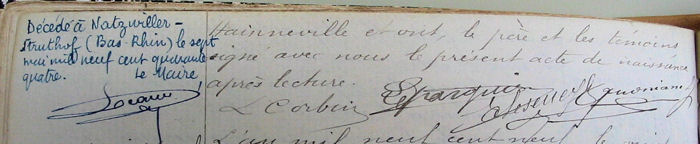 Décédé à Natzwiller-
Struthof (Bas-Rhin) le sept
mai mil neuf cent quarante
quatre.
Le Maire
Hainneville et ont, le père et les témoins
signé avec nous le présent acte de naissance
après lecture.
L Corbin
L'an mil neuf cent neuf, le